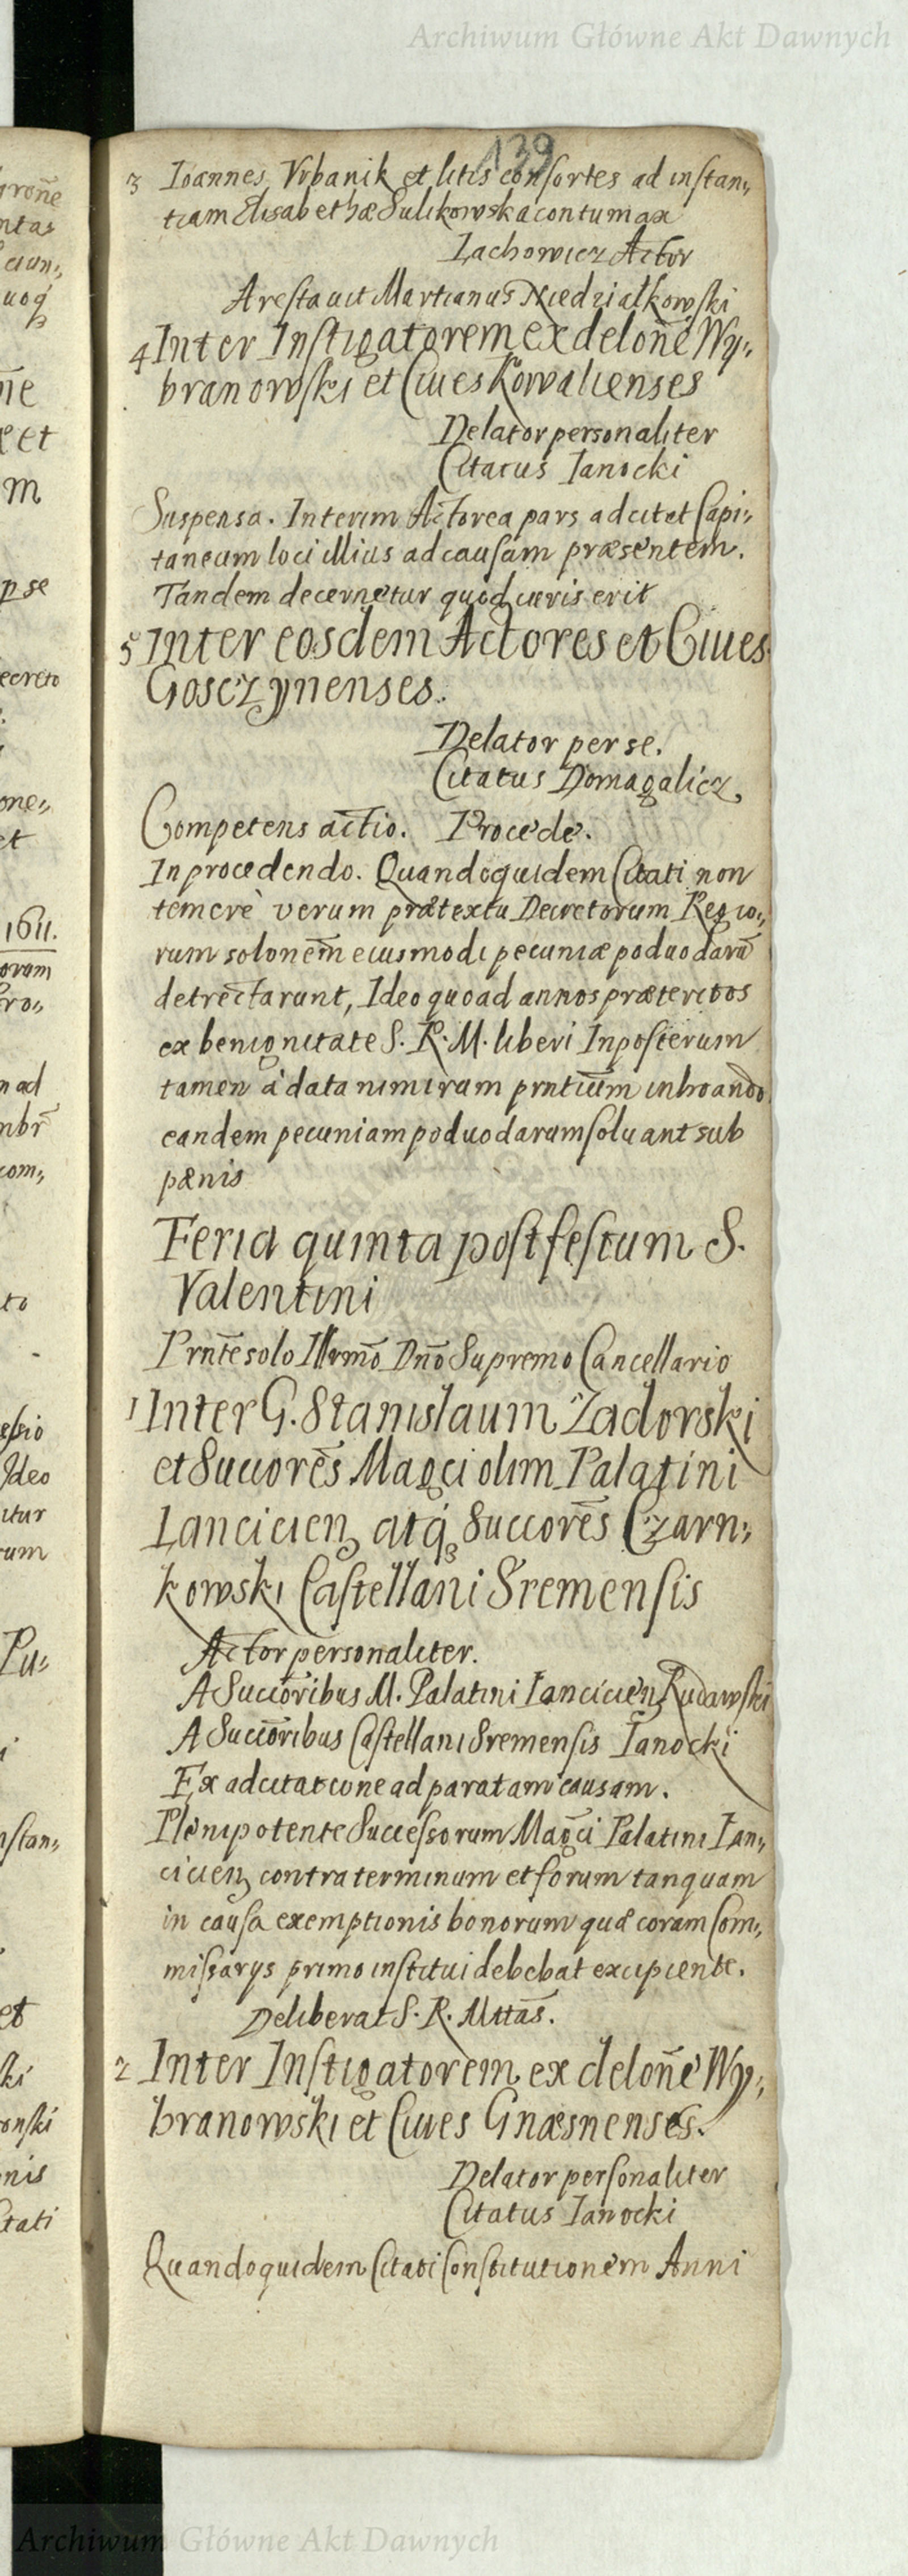 Archiwum Główne Akt Dawnych
139
3 Ioannes Vrbanik et litis consortes ad instan„
tiam Elisabethæ Sulikowska contumax
Lachowicz Actor
Arestauit Martianus Niedzialkowski
4 Inter Instigatorem ex delon̄e Wy„
branowski et Ciues Kowalienses
Delator personaliter
Citatus Ianocki
Suspensa. Interim Actorea pars adcitet Capi„
taneum loci illius ad causam præsentem.
Tandem decernetur quod iuris erit
5 Inter eosdem Actores et Ciues
Gosczynenses.
Delator per se.
Citatus Domagalicz
Competens actio. Procede.
In procedendo. Quandoquidem Citati non
temerè verum prætextu Decretorum Regio„
rum solonēm eiusmodi pecuniæ poduodarū
detrectarunt, Ideo quoad annos præteritos
ex benignitate S. R. M. liberi Inposterum
tamen à data nimirum prntiūm inhoando
eandem pecuniam poduodarum soluant sub
pænis
Feria quinta post festum S.
Valentini
Prn̄te solo Illrmō Dnō Supremo Cancellario
1 Inter G. Stanislaum Zadorski
et Succorēs Magc̄i olim Palatini
Lancicien atq́ Succorēs Czarn„
kowski Castellani Sremensis
Actor personaliter.
A Succōribus M. Palatini Lancicien Rudawski
A Succōribus Castellani Sremensis Ianocki
Ex adcitatione ad paratam causam.
Plenipotente Successorum Magc̄i Palatini Lan„
cicien contra terminum et forum tanquam
in causa exemptionis bonorum quæ coram Com„
missarys primo institui debebat excipiente.
Deliberat S. R. Mttās.
2 Inter Instigatorem ex delon̄e Wy„
branowski et Ciues Gnæsnenses.
Delator personaliter
Citatus Ianocki
Quandoquidem Citati Constitutionem Anni
Archiwum Główne Akt Dawnych